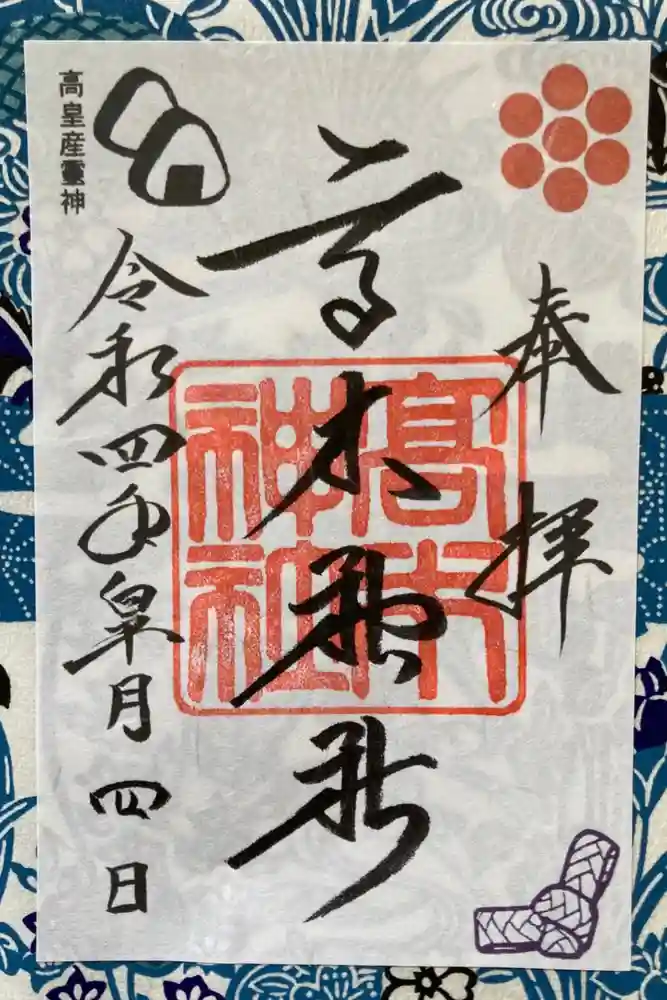 奉拝
高木神社
高木
神社
高皇産靈神
令和四年皐月四日